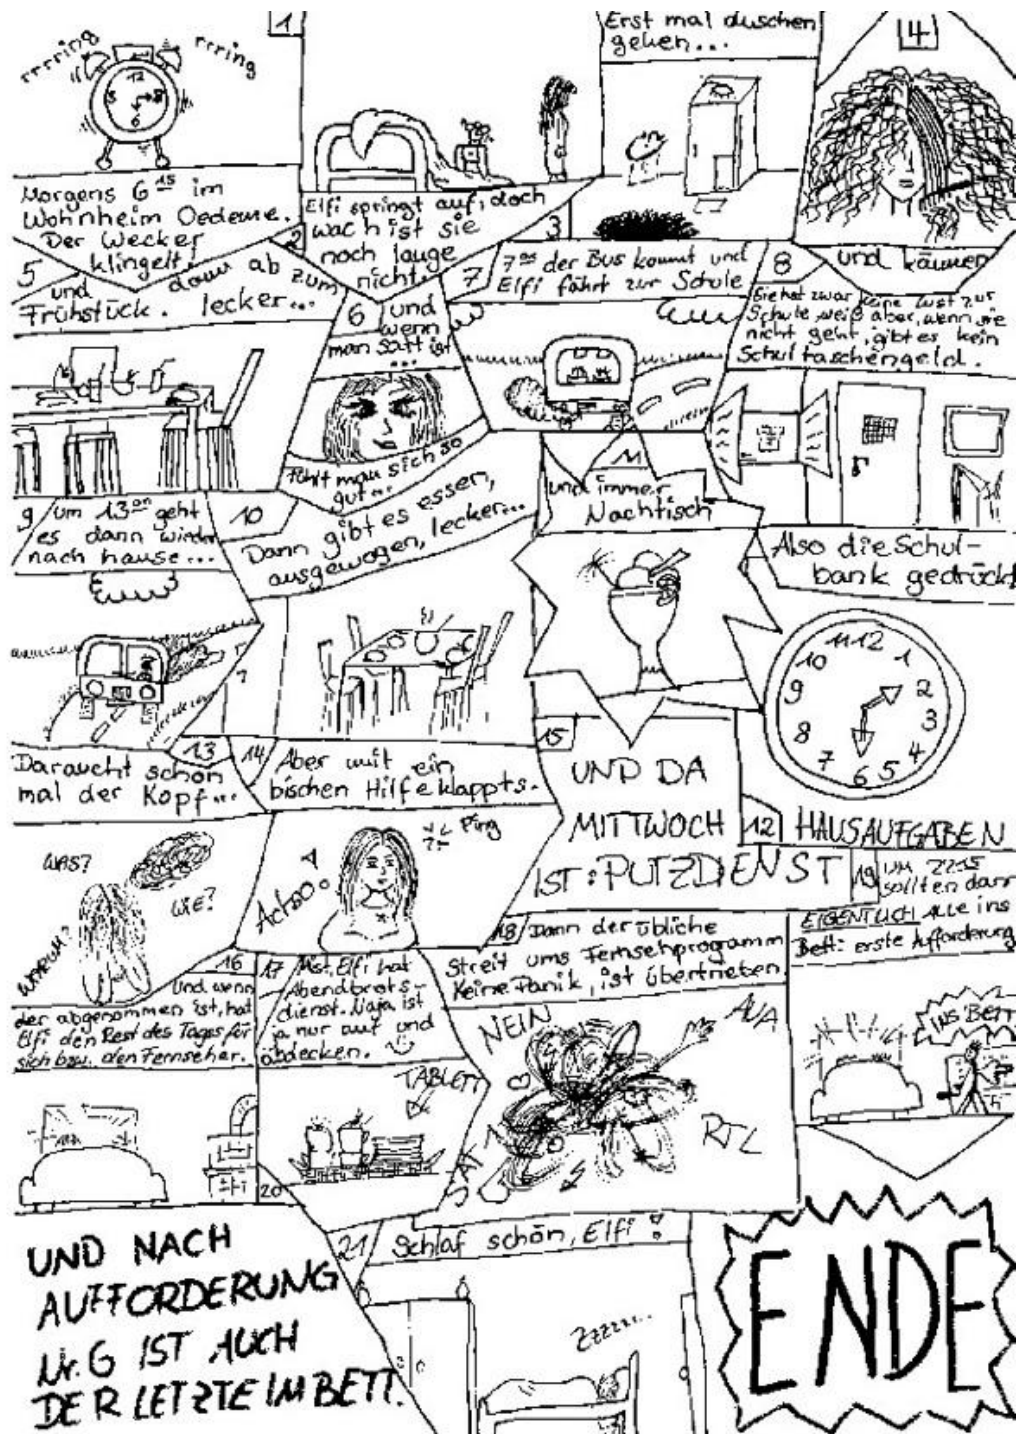 1
rrrring
rrrring
12
3
6
Morgens 6 15 im
Wohnheim Oedeme.
Der Wecker
klingelt!
2
Elfi springt auf, doch
wach ist sie
noch lange
nicht!
3
Erst mal duschen
gehen...
4
und kämmen
5
und dann ab zum
Frühstück. lecker...
6
und
wenn
man satt ist
...
fühlt man sich so
gut...
7
7 00 der Bus kommt und
Elfi fährt zur Schule
8
Sie hat zwar keine Lust zur
Schule, weiß aber, wenn sie
nicht geht, gibt es kein
Schultaschengeld.
Also die Schul-
bank gedrückt
9
um 13 00 geht
es dann wieder
nach hause...
10
Dann gibt es essen,
ausgewogen, lecker...
11
und immer
Nachtisch
11 12 1
10 2
9 3
8 4
7 6 5
12 HAUSAUFGABEN
13
Da raucht schon
mal der Kopf...
WAS?
WIE?
WARUM?
14
Aber mit ein
bischen Hilfe klappts.
Ping
Achso!
15
UND DA
MITTWOCH
IST: PUTZDIENST
16
Und wenn
der abgenommen ist, hat
Elfi den Rest des Tages für
sich bzw. den Fernseher.
17
Mist, Elfi hat
Abendbrots-
dienst. Naja ist
ja nur auf und
abdecken.
TABLETT
18
Dann der übliche
Streit ums Fernsehprogramm
Keine Panik, ist übertrieben
NEIN
AUA
RTL
SAT 1
19
UM 22 15
sollten dann
EIGENTLICH Alle ins
Bett: erste Aufforderung
INS BETT
20
UND NACH
AUFFORDERUNG
Nr. 6 IST AUCH
DER LETZTE IM BETT.
21
Schlaf schön, Elfi!
Zzzzzz...
ENDE